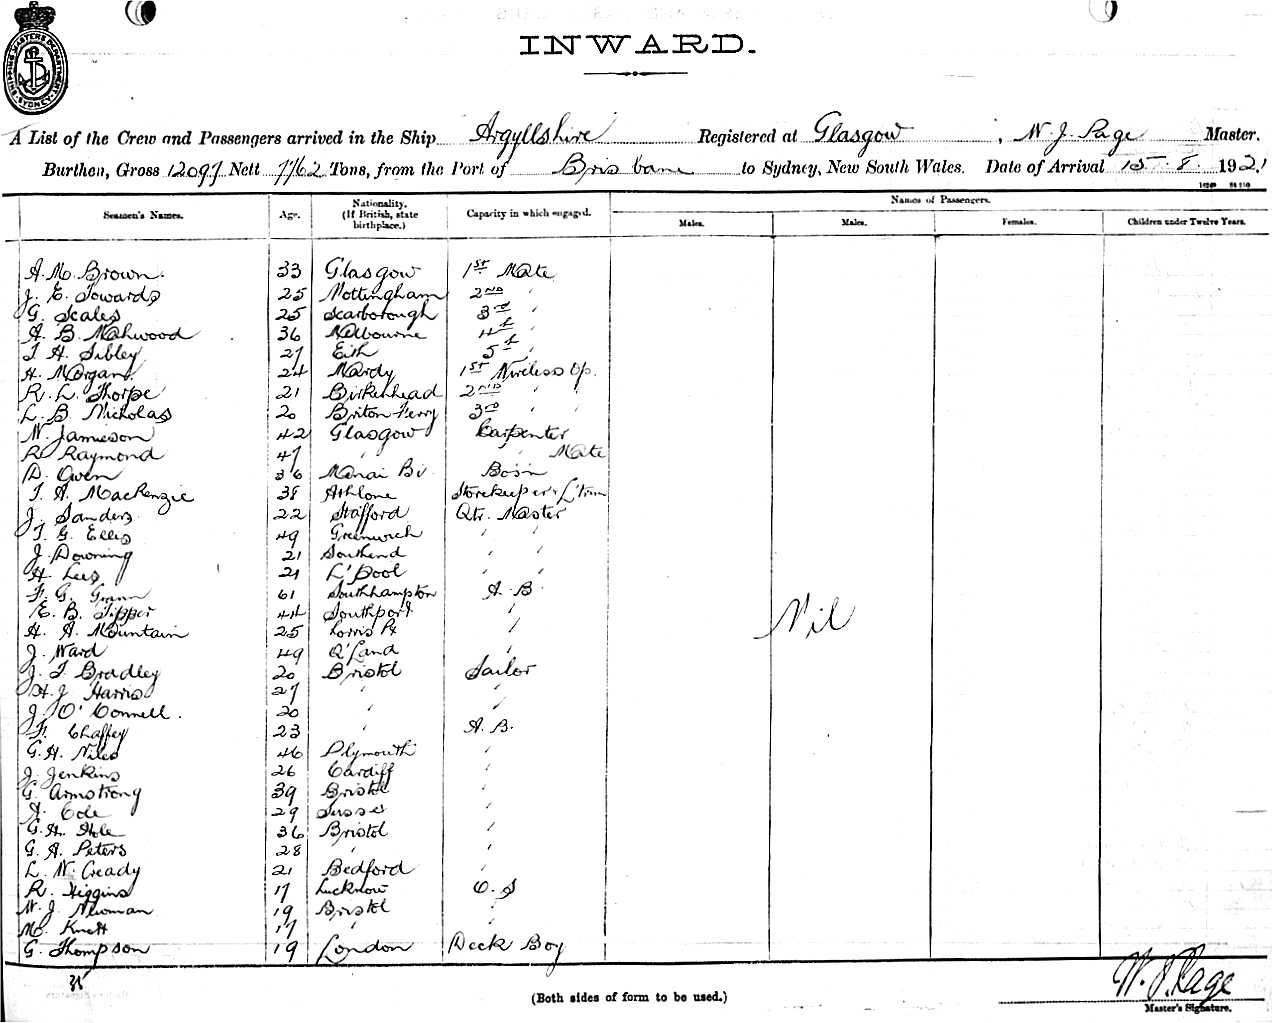 SHIPPING MASTERS DEPARTMENT SYDNEY
INWARD.
A List of the Crew and Passengers arrived in the Ship Argyllshire Registered at Glasgow, W. J. Page Master.
Burthen, Gross 12097 Nett 7762 Tons, from the Port of Brisbane to Sydney, New South Wales. Date of Arrival 15. 8. 1921
Seamen's Names. Age. Nationality. (If British, state birthplace.) Capacity in which engaged. Names of Passengers.
Males. Males. Females. Children under Twelve Years.
A. M. Brown. 33 Glasgow 1st Mate
J. E. Towards 25 Nottingham 2nd "
G. Scales 25 Scarborough 3rd "
A. B. Mahwood 36 Melbourne 4th "
T. H. Sibley 27 5th "
H. Morgan. 24 Mardy 1st Wireless Op.
R. L. Thorpe 21 Birkenhead 2nd " "
L. B. Nicholas 20 Briton Ferry 3rd " "
W. Jamieson 42 Glasgow Carpenter
R. Raymond 47 " " Mate
D. Owen 36 Menai Bri Bosn
T. A. MacKenzie 38 Athlone Storekeeper & L'trim
J. Sanders 22 Stafford Qtr. Master
T. G. Ellis 49 Greenwich " "
J. Downing 21 Southend " "
H. Lees 21 L'Pool " "
F. G. 61 Southhampton A. B.
E. B. Tipper 44 Southport "
H. A. Mountain 25 "
J. Ward 49 Q'Land "
J. T. Bradley 20 Bristol Sailor
H. J. Harris 27 " "
J. O'Connell. 20 " "
F. Chaffey 23 " A. B.
G. H. Niles 46 Plymouth "
J. Jenkins 26 Cardiff "
G. Armstrong 39 Bristol "
A. Cole 29 Sussex "
G. H. Hole 36 Bristol "
G. A. Peters 28 " "
L. W. Cready 21 Bedford "
R. Higgins 17 Lucknow O. S
W. J. Newman 19 Bristol "
M. Knett 17 " "
G. Thompson 19 London Deck Boy
Nil
35
(Both sides of form to be used.)
W. J. Page
Master's Signature.